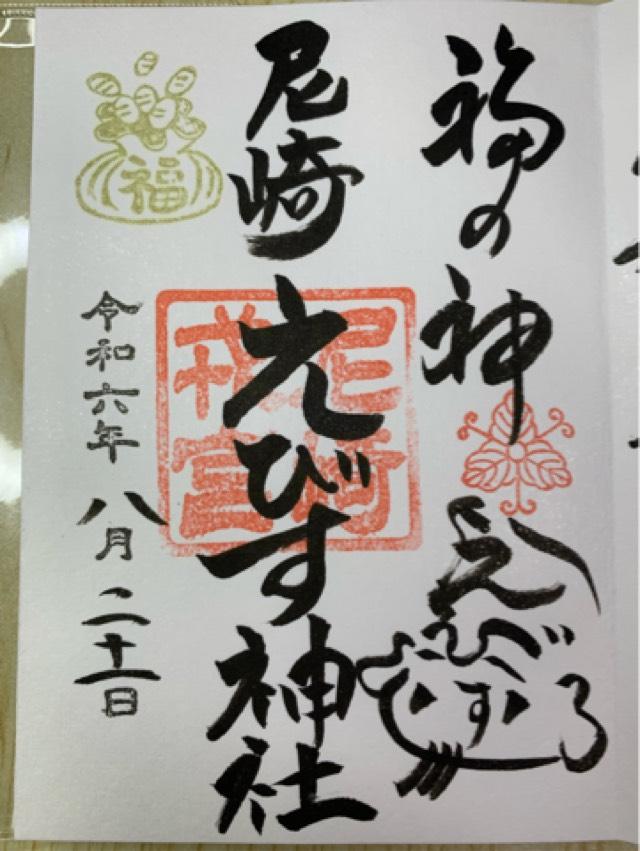 福の神
えびす
尼崎えびす神社
尼崎
戎宮
福
令和六年八月二十一日